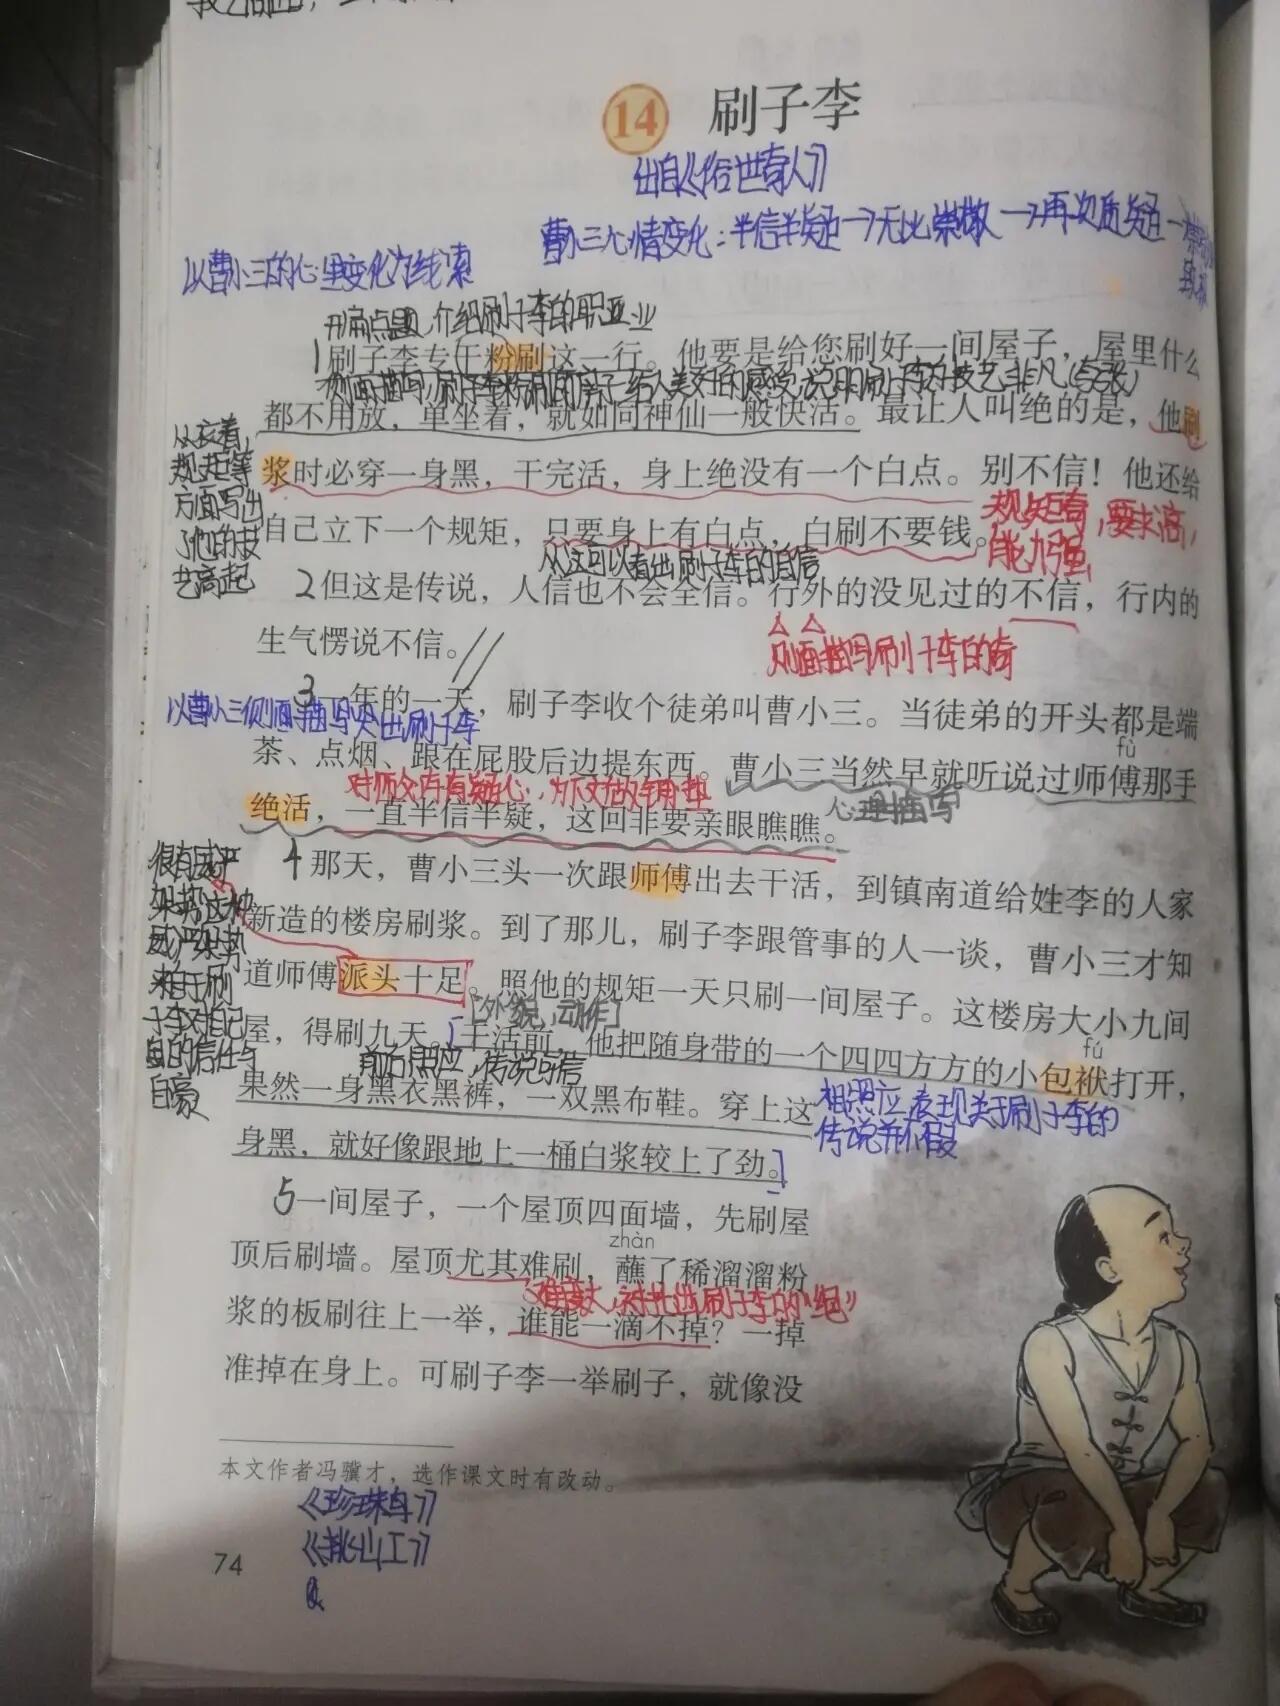 14 刷子李
出自《俗世奇人》
曹小三心情变化：半信半疑→无比崇敬→再次质疑→
以曹小三的心里变化为线索
开扁点题，介绍刷子李的职业
1刷子李专干粉刷这一行。他要是给您刷好一间屋子，屋里什么
侧面描写，刷子李粉刷的房子给人美好的感受，说明刷子李的技艺非凡(夸张)
都不用放，单坐着，就如同神仙一般快活。最让人叫绝的是，他刷
浆时必穿一身黑，干完活，身上绝没有一个白点。别不信！他还给
从衣着，
规矩等
方面写出
了他的技
艺高超
自己立下一个规矩，只要身上有白点，白刷不要钱。
规矩奇，要求高，
能力强
从这可以看出刷子李的自信
2但这是传说，人信也不会全信。行外的没见过的不信，行内的
生气愣说不信。
侧面描写刷子李的奇
3一年的一天，刷子李收个徒弟叫曹小三。当徒弟的开头都是端
以曹小三侧面描写突出刷子李
fù
茶、点烟、跟在屁股后边提东西。曹小三当然早就听说过师傅那手
对师父内有疑心，为下文做铺垫
心理描写
绝活，一直半信半疑，这回非要亲眼瞧瞧。
4那天，曹小三头一次跟师傅出去干活，到镇南道给姓李的人家
新造的楼房刷浆。到了那儿，刷子李跟管事的人一谈，曹小三才知
道师傅派头十足。照他的规矩一天只刷一间屋子。这楼房大小九间
很有威严
架势，这种
威严架势
来自于刷
子李对自己
的信任与
自豪
[外貌，动作]
fú
屋，得刷九天。干活前，他把随身带的一个四四方方的小包袱打开，
前后照应，传说可信
果然一身黑衣黑裤，一双黑布鞋。穿上这
相照应，表现关于刷子李的
传说并不假
身黑，就好像跟地上一桶白浆较上了劲。
5一间屋子，一个屋顶四面墙，先刷屋
zhàn
顶后刷墙。屋顶尤其难刷，蘸了稀溜溜粉
难度大，衬托出刷子李的“绝”
浆的板刷往上一举，谁能一滴不掉？一掉
准掉在身上。可刷子李一举刷子，就像没
本文作者冯骥才，选作课文时有改动。
《珍珠鸟》
《挑山工》
74